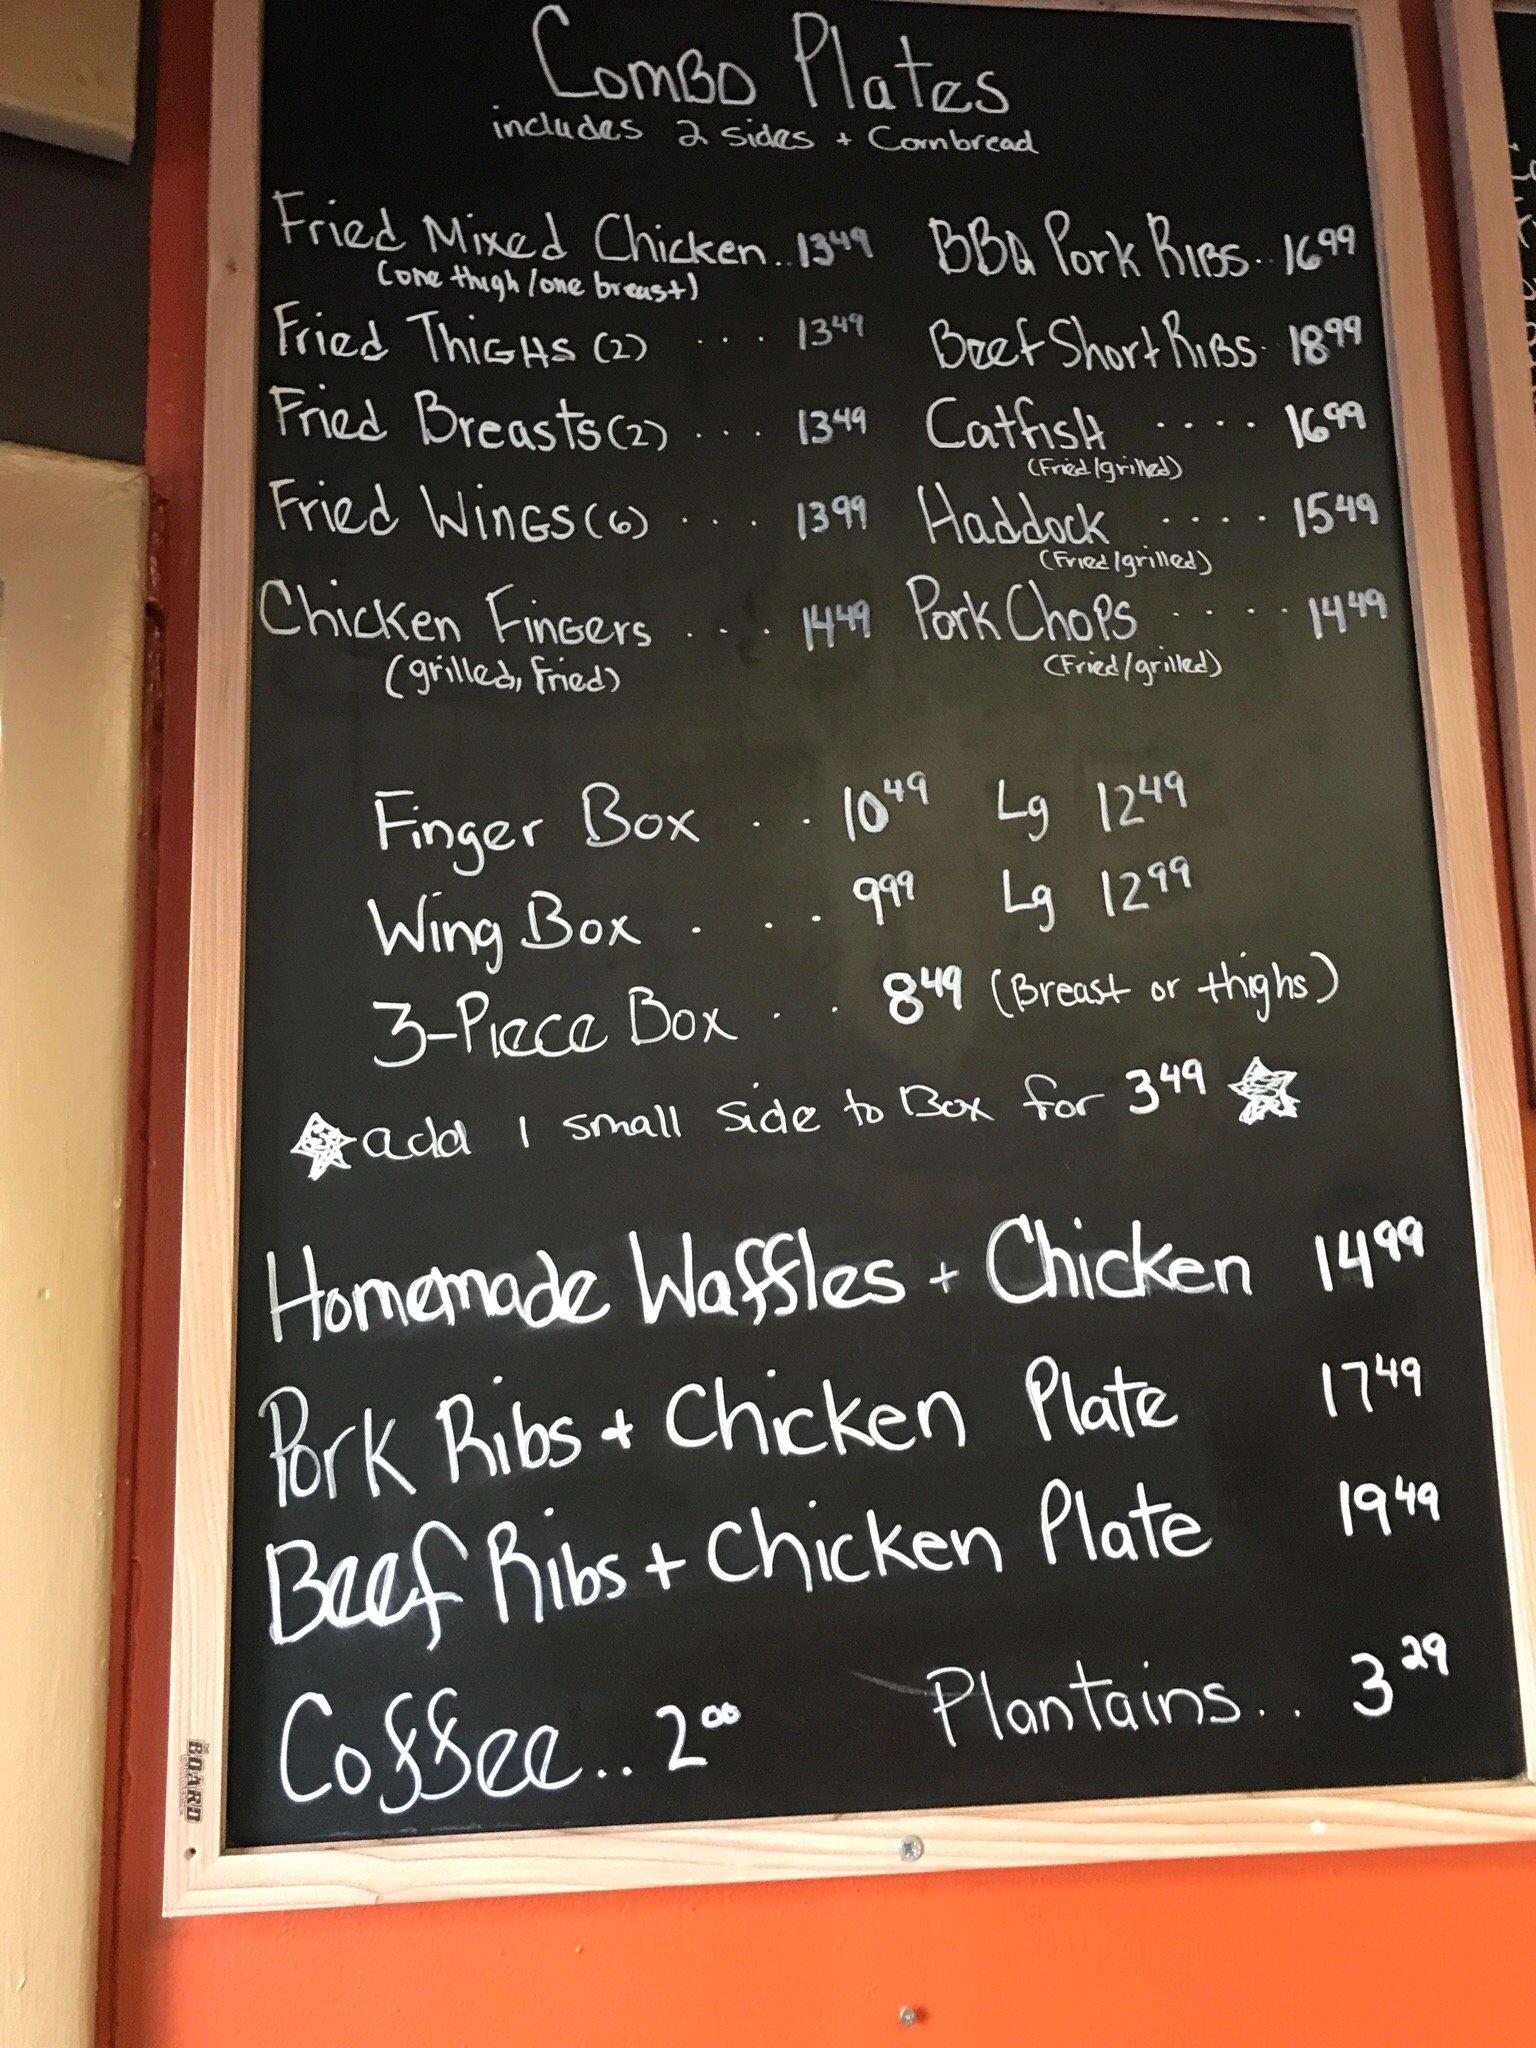 Combo Plates
includes 2 sides + Cornbread
Fried Mixed Chicken.. 13 49
(one thigh/one breast)
Fried Thighs (2) ... 13 49
Fried Breasts (2) ... 13 49
Fried Wings (6) ... 13 99
Chicken Fingers ... 14 49
(grilled, Fried)
BBQ Pork Ribs.. 16 99
Beef Short Ribs. 18 99
Catfish .... 16 99
(Fried/grilled)
Haddock .... 15 49
(Fried/grilled)
Pork Chops .... 14 49
(Fried/grilled)
Finger Box .. 10 49 Lg 12 49
Wing Box ... 9 99 Lg 12 99
3-Piece Box .. 8 49 (Breast or thighs)
add 1 small side to Box for 3 49
Homemade Waffles + Chicken 14 99
Pork Ribs + Chicken Plate 17 49
Beef Ribs + Chicken Plate 19 49
Coffee.. 2 00 Plantains.. 3 29
BOARD